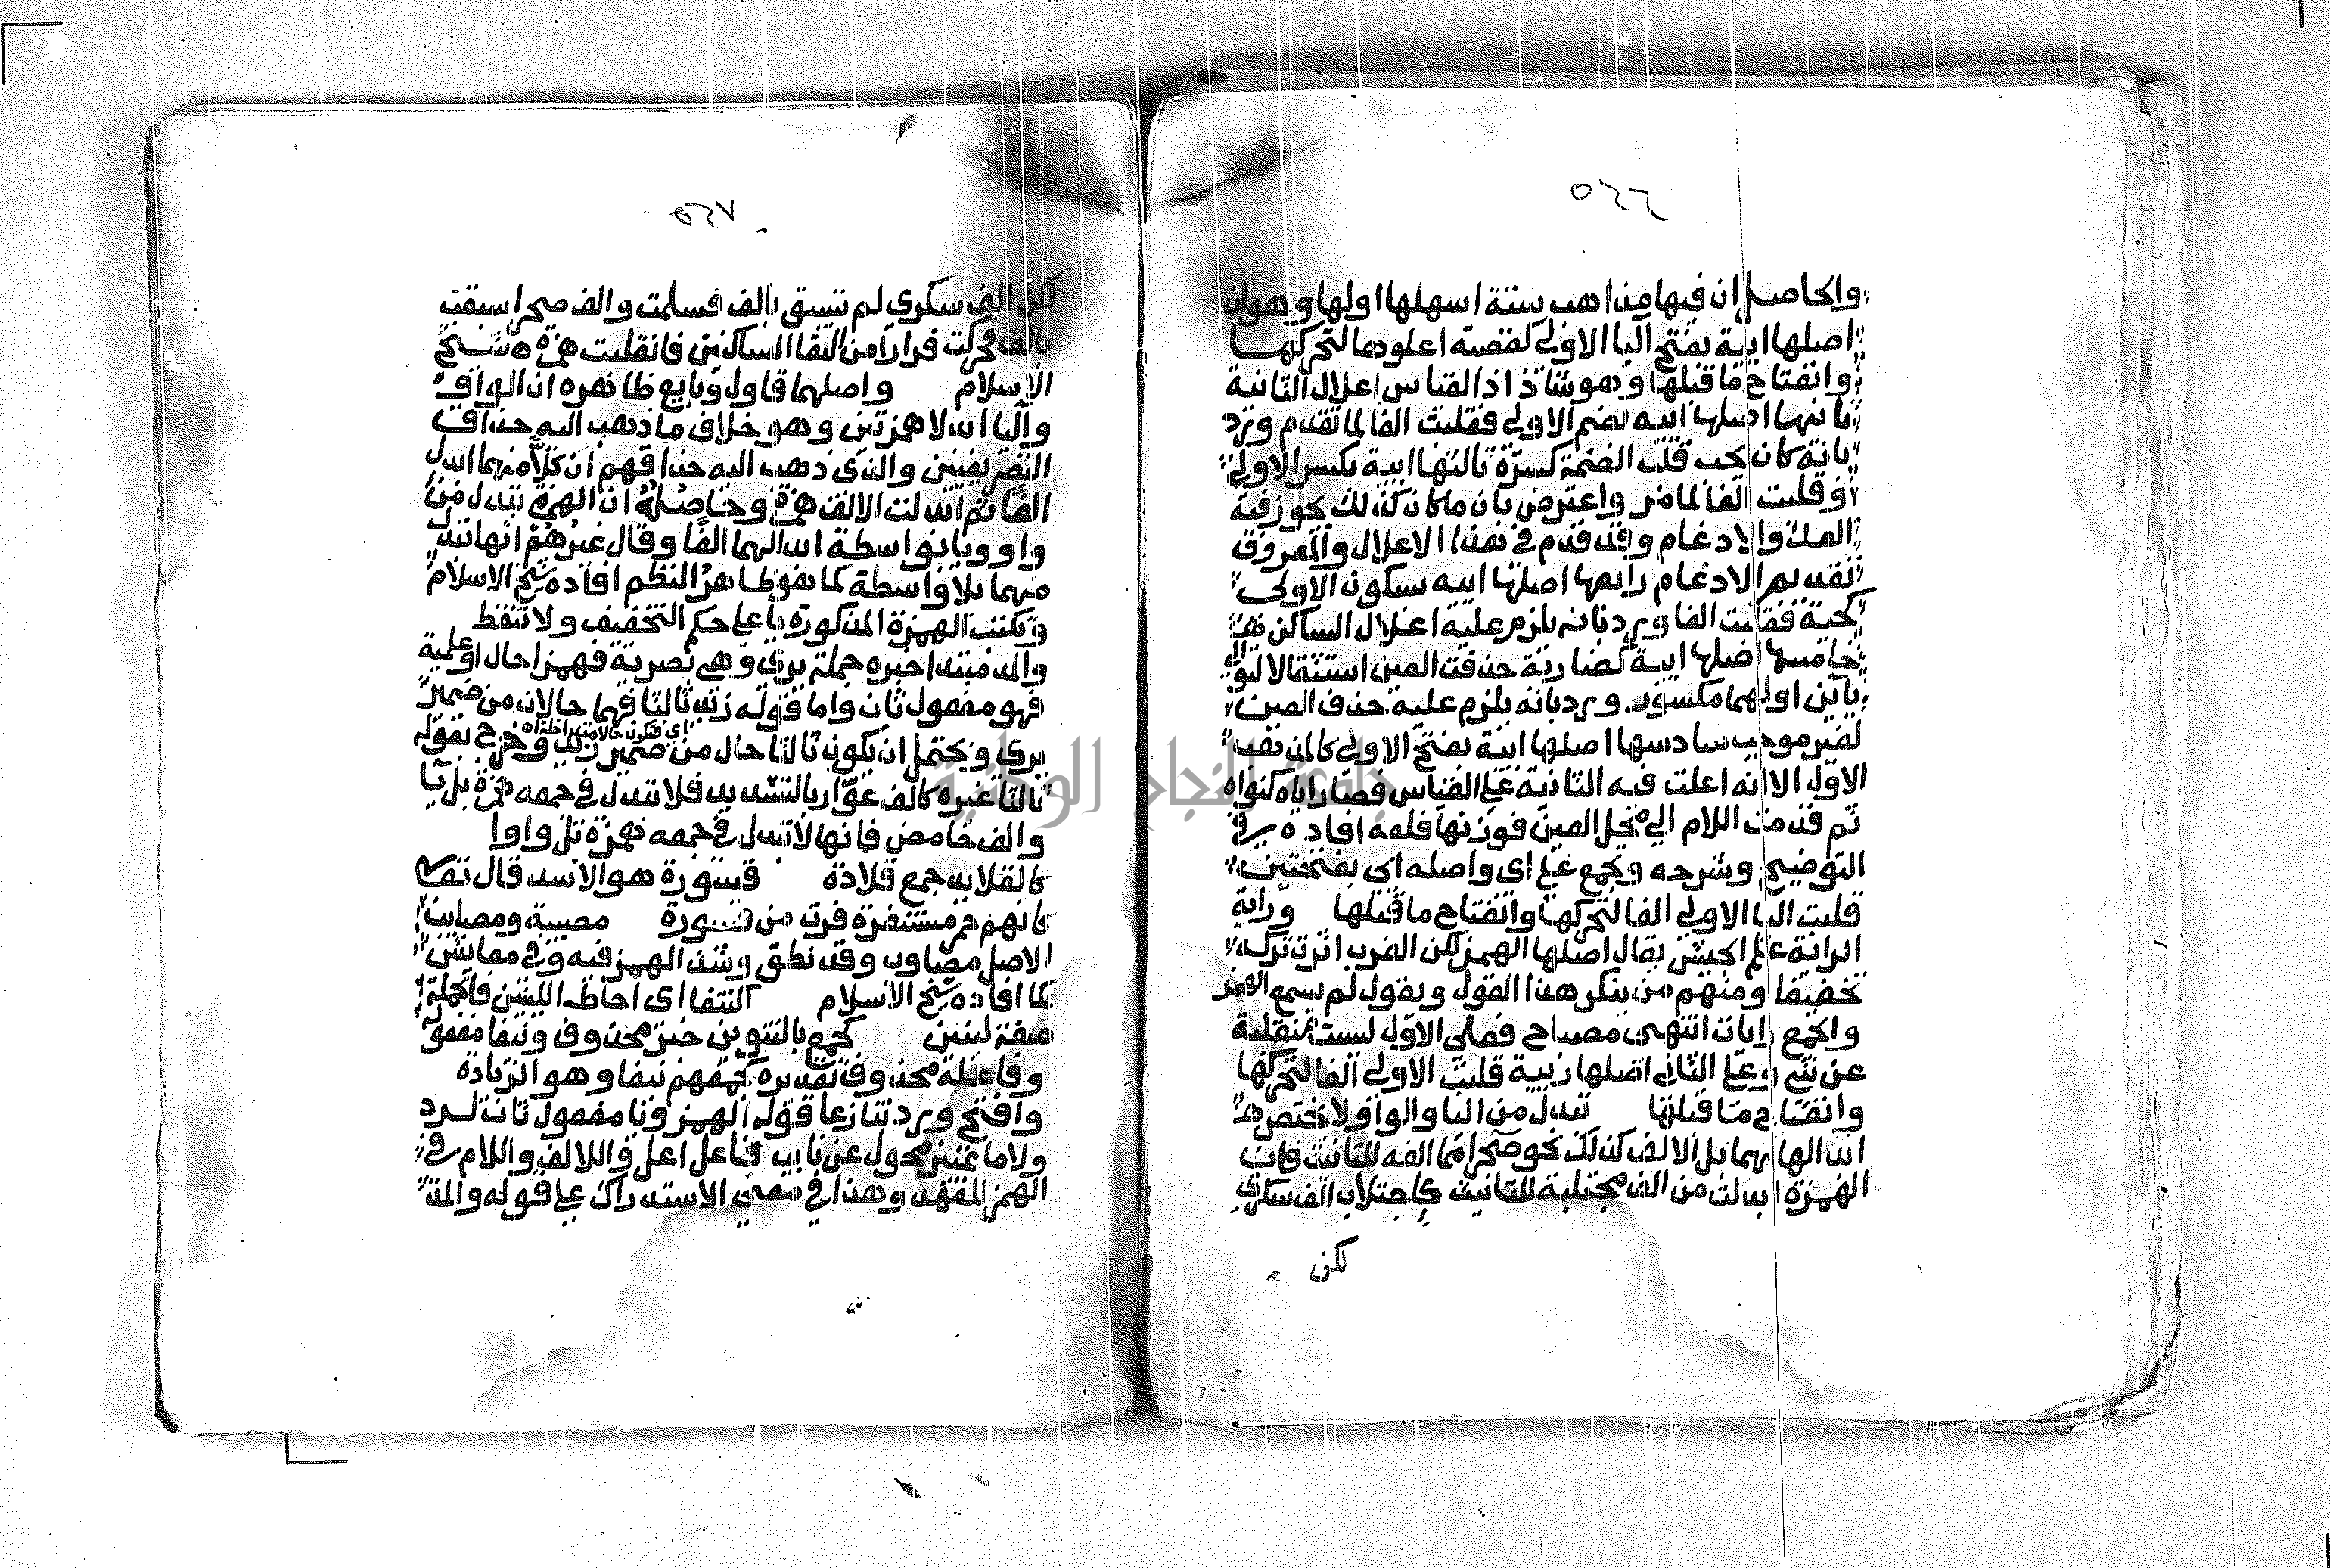 ٥٦٦
والحاصل ان فيها مذاهب ستة اسهلها اولها وهو ان
اصلها ايية بفتح اليا الاولى كقصبة اعلوها لتحركها
وانفتاح ما قبلها وهو شاذ اذ القياس اعلال الثانية
ثانيها اصلها اييه بضم الاولى فقلبت الفا لما تقدم ورد
بانه كان يجب قلب الضمة كسرة ثالثها ايية بكسر الاولى
وقلبت الفا لما مر واعترض بان ما كان كذلك يجوز فيه
الفك والادغام وقد قدم في هذا الاعلال والمعروف
تقديم الادغام رابعها اصلها اييه بسكون الاولى
كحية فقلبت الفا ورد بانه يلزم عليه اعلال الساكن
خامسها اصلها ايية كضاربة حذفت العين استثقالا لتوالي
ياين اولهما مكسور ورد بانه يلزم عليه حذف العين
لغير موجب سادسها اصلها ايية بفتح الاولى كالمذهب
الاول الا انه اعلت فيه الثانية على القياس فصار اياه كنواه
ثم قدمت اللام الى محل العين فوزنها فلعه افاده في
التوضيح وشرحه ويجمع على اى واصله ايى بفتحتين
قلبت اليا الاولى الفا لتحركها وانفتاح ما قبلها وراية
الراية علم الجيش يقال اصلها الهمز لكن العرب اثرت تركه
تخفيفا ومنهم من ينكر هذا القول ويقول لم يسمع الهمز
والجمع رايات انتهى مصباح فعلى الاول ليست منقلبة
عن شي وعلى الثاني اصلها ريية قلبت الاولى الفا لتحركها
وانفتاح ما قبلها تبدل من اليا والواو ولا يختص
ابدالها بهما بل الالف كذلك نحو صحرا مما الفه للتانيث فان
الهمزة ابدلت من الف مجتلبة للتانيث كاجتلاب الف سكرى
لكن
٥٦٧
لكن الف سكرى لم تسبق بالف فسلمت والف صحرا سبقت
بالف فحركت فرارا من التقا الساكنين فانقلبت همزة ه شيخ
الاسلام واصلهما قاول وبايع ظاهره ان الواو
واليا ابدلا همزتين وهو خلاف ما ذهب اليه حذاق
التصريفيين والذى ذهب اليه حذاقهم ان كلا منهما ابدل
الفا ثم ابدلت الالف همزة وحاصله ان الهمزة تبدل من
واو ويا بواسطة ابدالهما الفا وقال غيرهم انها تبدل
منهما بلا واسطة كما هو ظاهر النظم افاده شيخ الاسلام
وتكتب الهمزة المذكورة يا على حكم التخفيف ولا تنقط
والمد مبتدا خبره جملة يرى وهي بصرية فهمزا حال او علمية
فهو مفعول ثان واما قوله زيد ثالثا فهما حالان من ضمير
اى فيكون حالا متداخلة اه
يرى ويحتمل ان يكون ثالثا حال من ضمير زيد وخرج بقوله
ثالثا غيره كالف عوار بالتشديد فلا تبدل في جمعه همزة بل يا
والف غامض فانها لا تبدل في جمعه همزة بل واوا
كالقلايد جمع قلادة قسورة هو الاسد قال تعا
كانهم حمر مستنفرة فرت من قسورة مصيبة ومصايب
الاصل مصاوب وقد نطق وشذ الهمز فيه وفي معايش
كما افاده شيخ الاسلام اكتنفا اى احاطه اللينين فالجملة
صفة لينين كجمع بالتنوين خبر محذوف ونيفا مفعول
وفاعله محذوف تقديره كجمعهم نيفا وهو الزيادة
وافتح ورد تنازعا قوله الهمز ويا مفعول ثان لرد
ولاما تمييز محول عن نايب فاعل اعل واللالف واللام في
الهمز للعهد وهذا في معنى الاستدراك على قوله والمد